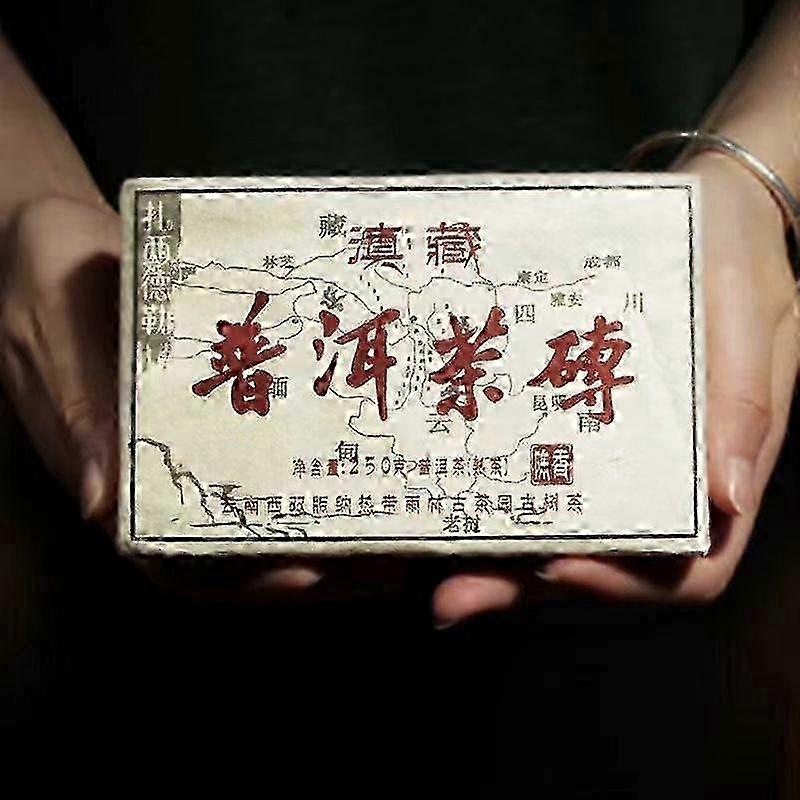 扎西德勒
滇藏
藏
林芝
康定
成都
雅安
四
川
普洱茶砖
缅
昆明
云
南
甸
净含量:250克>普洱茶(熟茶)
云南西双版纳热带雨林古茶园古树茶
老挝